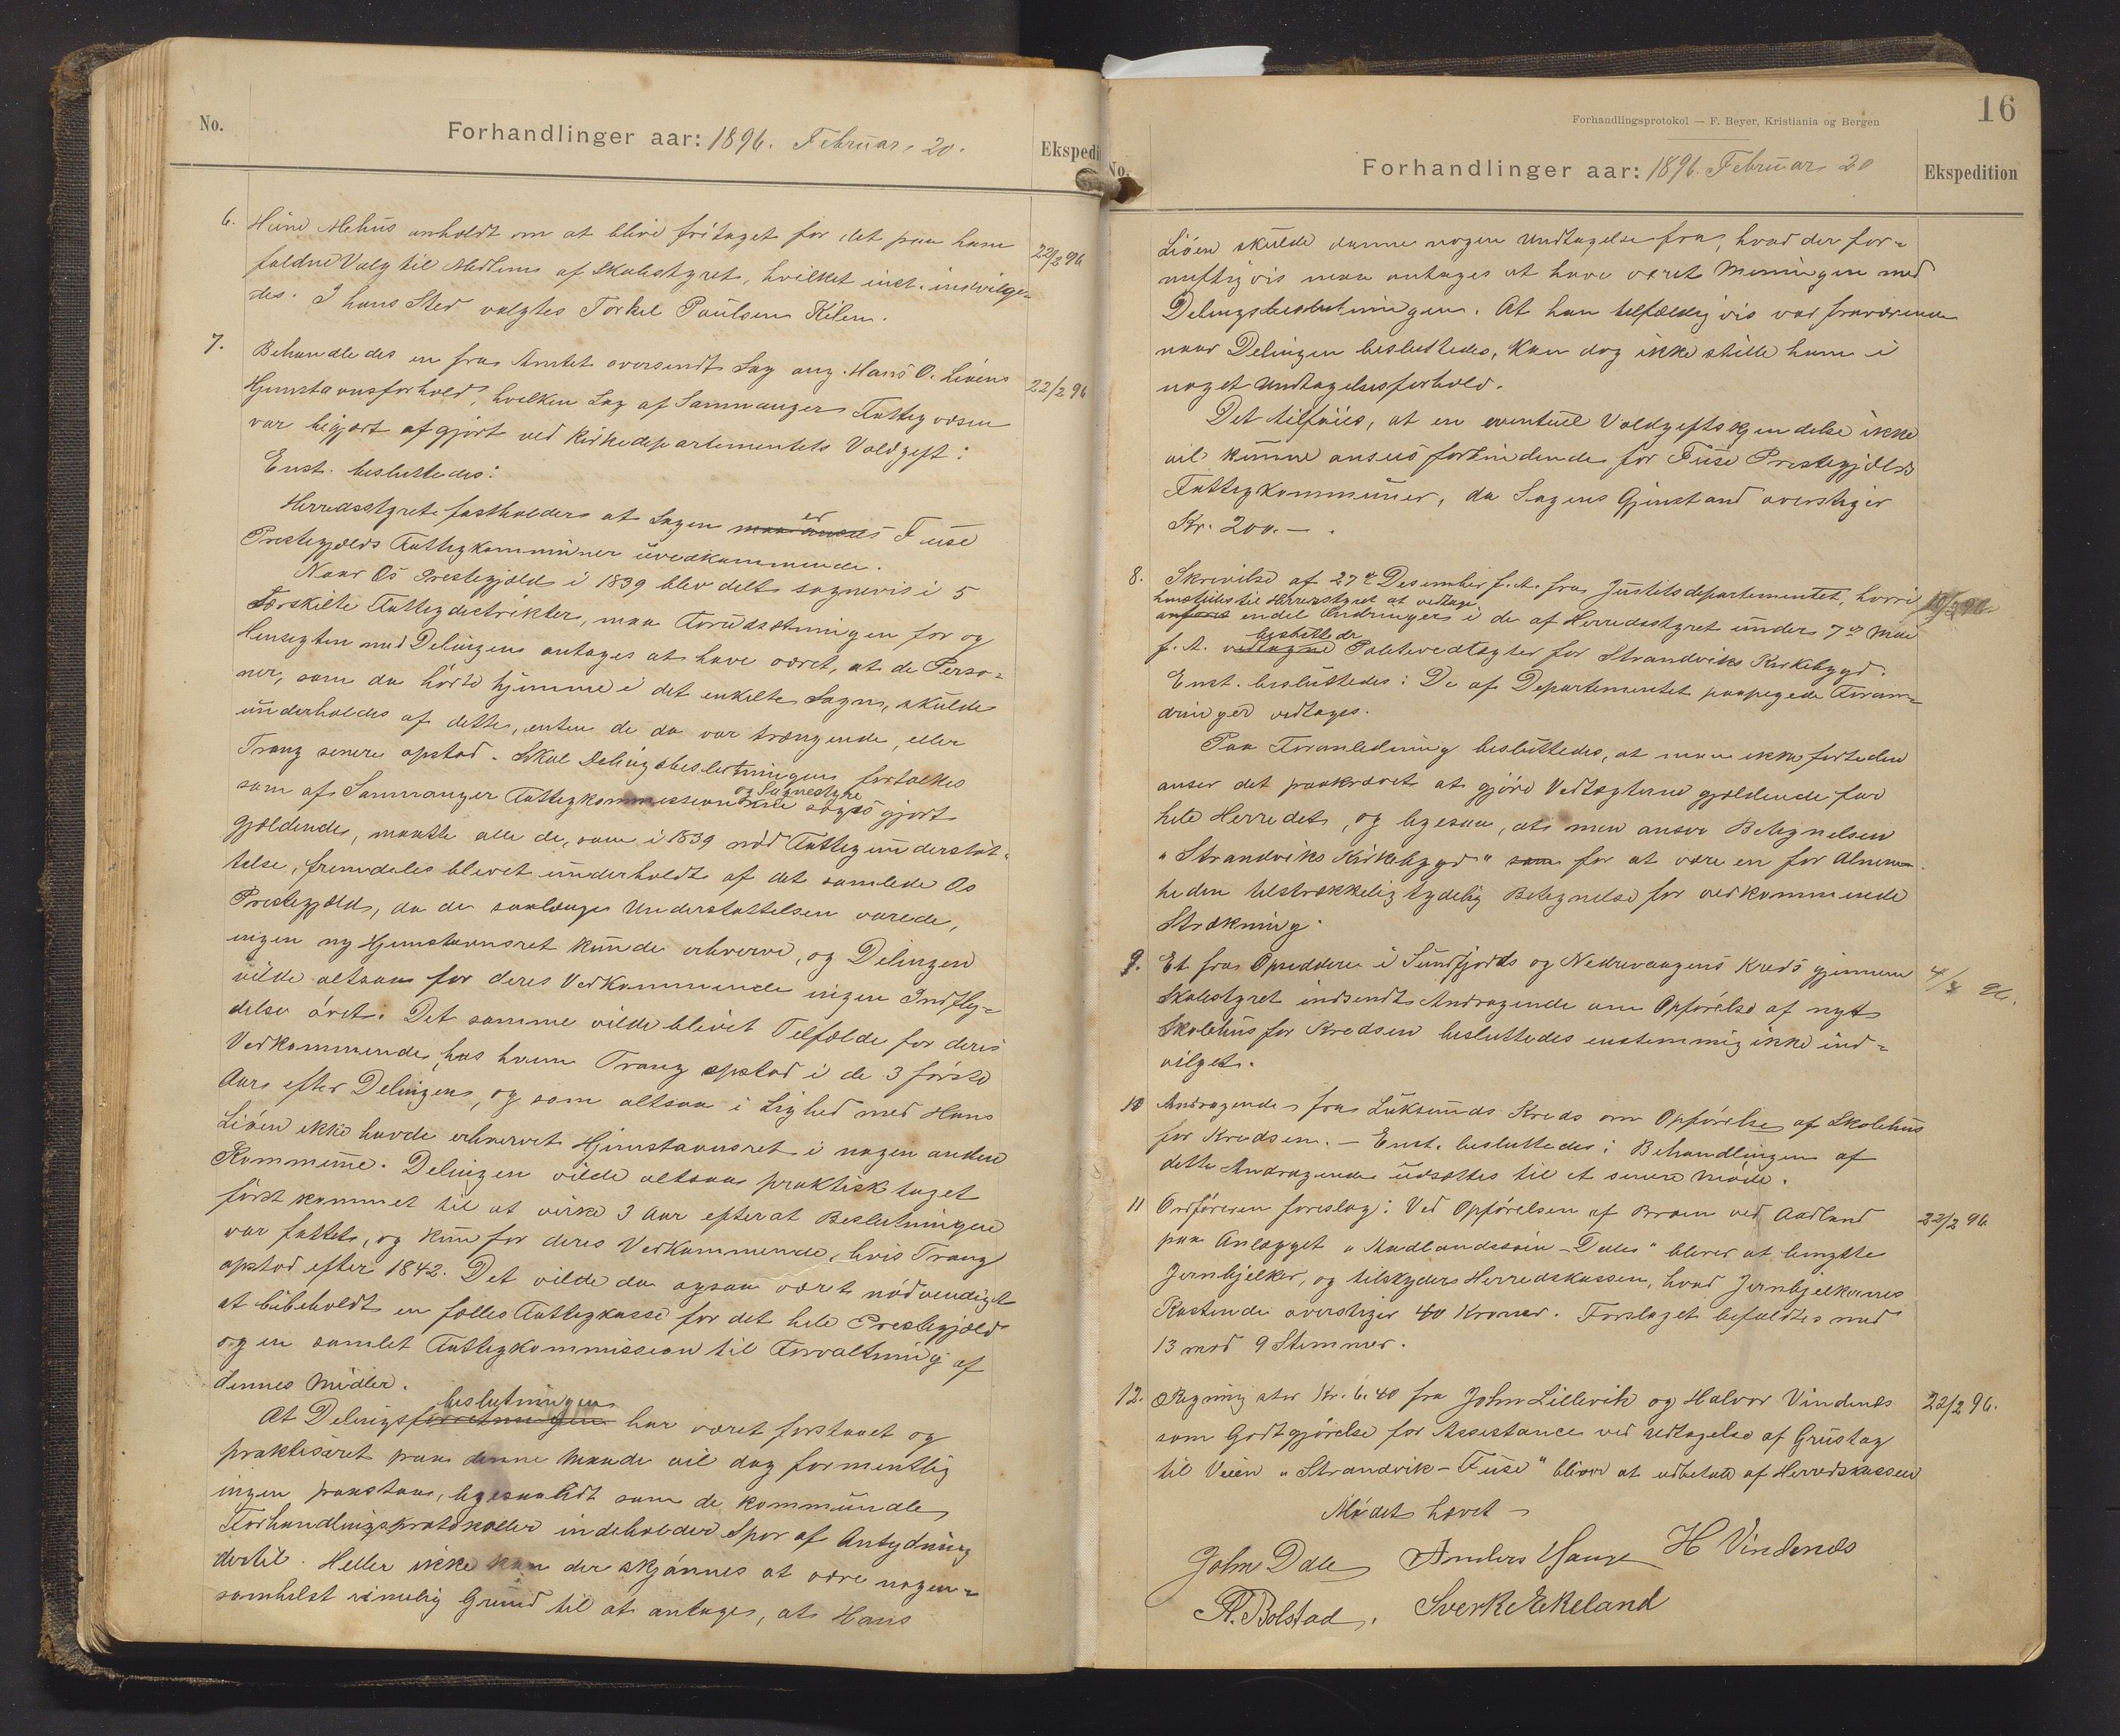 No.
Forhandlinger aar: 1896. Februar 20.
Ekspedi
6. Hund Mehus anholdt om at blive fritaget for det paa ham
faldne Valg til Medlem af Skolestyret, hvilket enst. indvilge=
des. I hans Sted valgtes Torkel Paulsen Kilen.
22/2 96
7. Behandledes en fra Amtet oversendt Sag ang. Hans O. Liøens
Hjemstavnsforhold, hvilken Sag af Samnanger Fattigvæsen
var begjært afgjort ved Kirkedepartementets Voldgift:
22/2 96
Enst. besluttedes:
Herredsstyret fastholder at Sagen er Fuse
Prestegjælds Fattigkommuner uvedkommende.
Naar Os Prestegjæld i 1839 blev delt sognevis i 5
særskilte Fattigdistrikter, maa Forudsætningen for og
Hensigten med Delingen antages at have været, at de Perso=
ner, som da hørte hjemme i det enkelte Sogn, skulde
underholdes af dette, enten de da var trængende, eller
Trang senere opstod. Skal Delingsbeslutningen fortolkes
og Sognestyre
som af Samnanger Fattigkommission søges gjort
gjældende, maatte alle de, som i 1839 nød Fattigunderstøt=
telse, fremdeles blevet underholdt af det samlede Os
Prestegjæld, da de saalænge Understøttelsen varede,
ingen ny Hjemstavnsret kunde erhverve, og Delingen
vilde altsaa for deres Vedkommende ingen Indfly=
delse øvet. Det samme vilde blevet Tilfælde for deres
Vedkommende, hos hvem Trang opstod i de 3 første
Aar efter Delingen, og som altsaa i Lighed med Hans
Liøen ikke havde erhvervet Hjemstavnsret i nogen anden
Kommune. Delingen vilde altsaa praktisk taget
først kommet til at virke 3 Aar efterat Beslutningen
var fattet, og kun for deres Vedkommende, hvis Trang
opstod efter 1842. Det vilde da ogsaa været nødvendigt
at bibeholdt en fælles Fattigkasse for det hele Prestegjæld
og en samlet Fattigkommission til Forvaltning af
dennes Midler.
beslutningen
At Delingsforretningen har været forstaaet og
praktiseret paa denne Maade vil dog formentlig
ingen paastaa, ligesaalidt som de kommunale
Forhandlingsprotokoller indeholder Spor af Antydning
dertil. Heller ikke kan der skjønnes at være nogen=
somhelst rimelig Grund til at antage, at Hans
16
Forhandlingsprotokol — F. Beyer, Kristiania og Bergen
No.
Forhandlinger aar: 1896. Februar 20
Ekspedition
Liøen skulde danne nogen Undtagelse fra, hvad der for=
nuftigvis maa antages at have været Meningen med
Delingsbeslutningen. At han tilfældigvis var fraværende
naar Delingen besluttedes, kan dog ikke stille ham i
noget Undtagelsesforhold.
Det tilføies, at en eventuel Voldgiftskjendelse ikke
vil kunne ansees forbindende for Fuse Prestegjælds
Fattigkommuner, da Sagens Gjenstand overstiger
Kr. 200.—.
8. Skrivelse af 27de Desember f. A. fra Justitsdepartementet, hvori
henstilles til Herredstyret at vedtage
endel Ændringer i de af Herredsstyret under 7de Mai
besluttede
f. A. vedtagne Politivedtægter for Strandviks Kirkebygd.
Enst. besluttedes: De af Departementet paapegede Foran=
dringer vedtages.
Paa Foranledning besluttedes, at man ikke fortiden
anser det paakrævet at gjøre Vedtægterne gjældende for
hele Herredet, og ligesaa, at man anser Betegnelsen
"Strandviks Kirkebygd" som for at være en for Almen=
heden tilstrækkelig tydelig Betegnelse for vedkommende
Strækning.
9. Et fra Opsiddere i Sundfjords og Nedrevaagens Kreds gjennem
Skolestyret indsendt Andragende om Opførelse af nyt
Skolehus for Kredsen besluttedes enstemmig ikke ind=
vilget.
10 Andragende fra Luksunds Kreds om Opførelse af Skolehus
for Kredsen. — Enst. besluttedes: Behandlingen af
dette Andragende udsættes til et senere Møde.
11 Ordføreren foreslog: Ved Opførelsen af Broen ved Aadland
paa Anlægget "Aadlandssøen–Dale" bliver at benytte
Jernbjelker, og tilskyder Herredskassen, hvad Jernbjelkernes
Kostende overstiger 40 Kroner. Forslaget befaldtes med
13 mod 9 Stemmer.
22/2 96
12. Regning stor Kr. 6.40 fra John Lillevik og Halvor Vindenes
som Godtgjørelse for Assistance ved Udtagelse af Grustag
til Veien "Strandvik–Fuse" bliver at udbetale af Herredskassen
22/2 96.
Mødet hævet
John Dale Anders Hauge H Vindenes
A. Bolstad. Sverke Ekeland